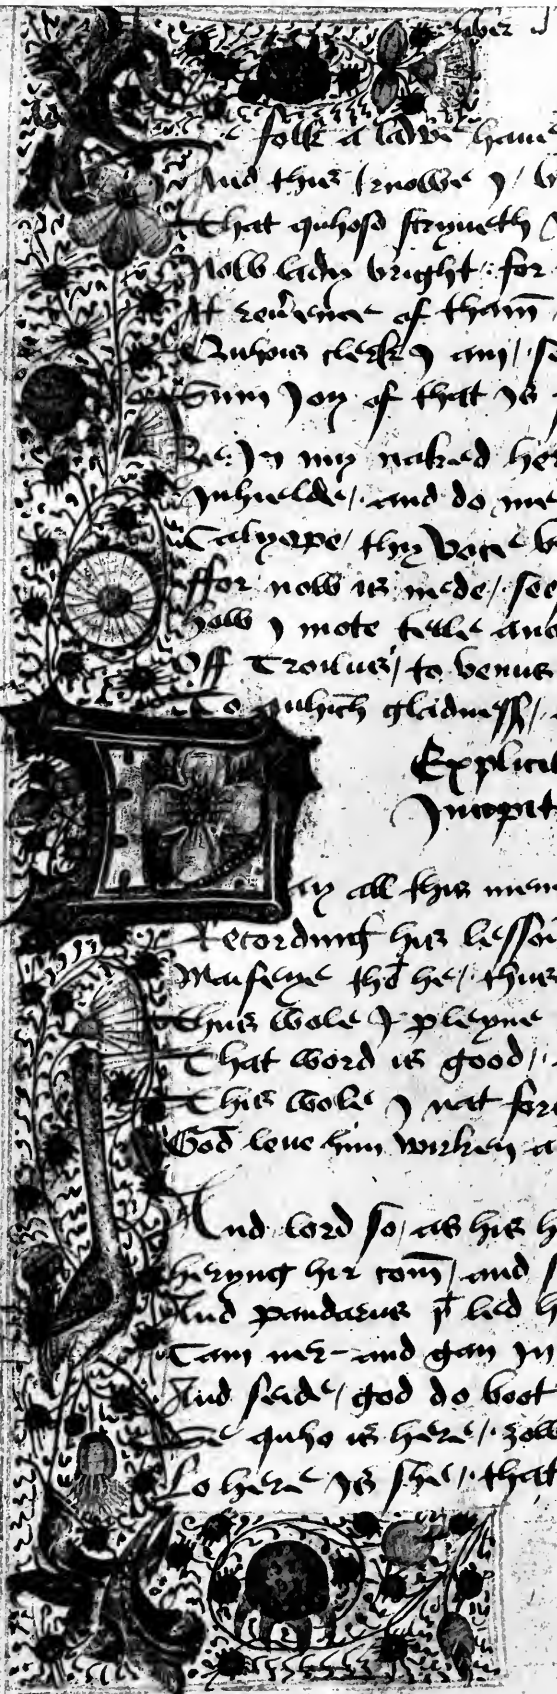 liber
folk a ladye haue
And this knowe I /
That quhoso stryueth
Now lady bright / for
At reuerence of tham
Quhois clerk I am / se
Sum Ioy of that is
Be: In my naked her
Inhielde / and do me
Calyope / thy voce b
ffor now is nede / see
how I mote telle and
Off Troilus / to venus
To quhich gladness /
Explicit
Incipit
ay all this mene
Recording his lesson
Mafeye tho he / thus
Thus wole I pleyne
That word is good /
This wole I nat forȝ
God leue him wirken a
And lord so / as his h
heryng hir com / and s
And pandarus þt led h
Cam ner and gan In
And seide / god do boot
Se quho is here / ȝow
Lo here is she / that